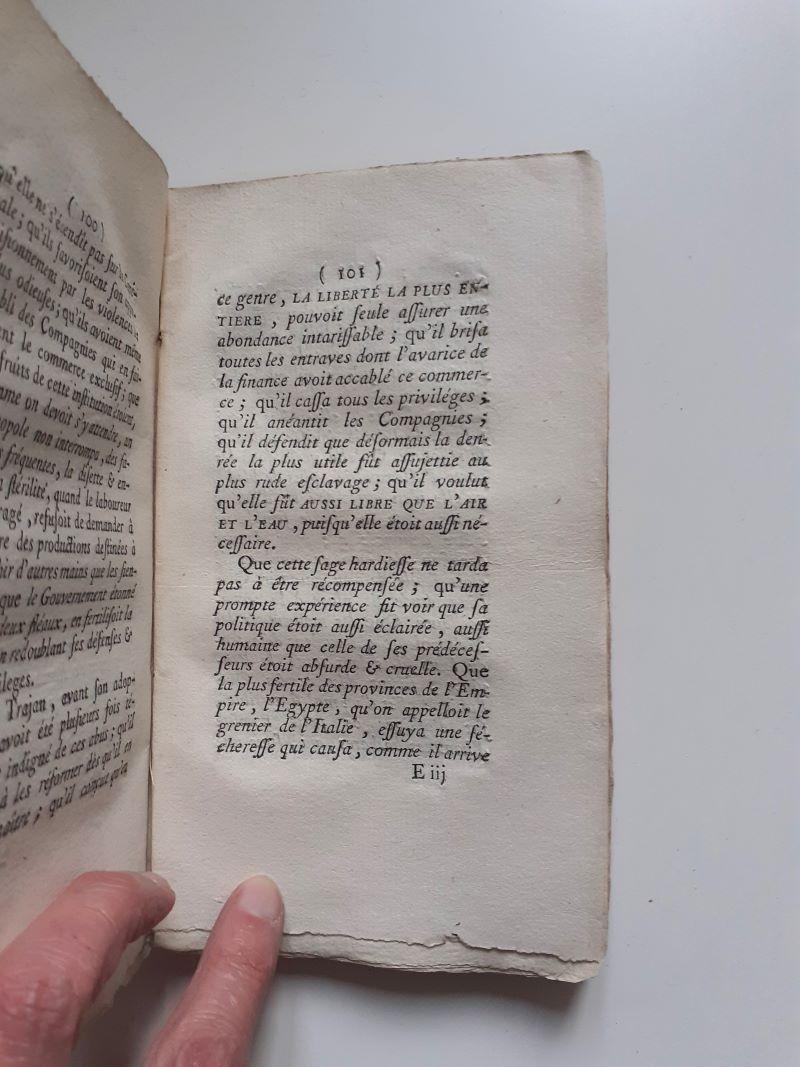 ( 100 )
qu'elle ne s'étendit pas ſur la
ale ; qu'ils favoriſoient ſon
iſionnement par les violences
us odieuſes ; qu'ils avoient même
bli des Compagnies qui en fai-
ent le commerce excluſif ; que
fruits de cette inſtitution étoient,
mme on devoit s'y attendre, un
opole non interrompu, des fa-
s fréquentes, la diſette & en-
n ſtérilité, quand le laboureur
ragé , refuſoit de demander à
re des productions deſtinées à
hir d'autres mains que les ſien-
que le Gouvernement étonné
deux fléaux, en fertiliſoit la
n redoublant ſes défenſes &
ileges.
Trajan, avant ſon adop-
avoit été pluſieurs fois té-
indigné de ces abus ; qu'il
à les réformer dès qu'il en
naître ; qu'il conçut qu'en
( 101 )
ce genre, LA LIBERTÉ LA PLUS EN-
TIERE , pouvoit ſeule aſſurer une
abondance intariſſable ; qu'il briſa
toutes les entraves dont l'avarice de
la finance avoit accablé ce commer-
ce ; qu'il caſſa tous les priviléges ;
qu'il anéantit les Compagnies ;
qu'il défendit que déſormais la den-
rée la plus utile fût aſſujettie au
plus rude eſclavage ; qu'il voulut
qu'elle fût AUSSI LIBRE QUE L'AIR
ET L'EAU , puiſqu'elle étoit auſſi né-
ceſſaire.
Que cette ſage hardieſſe ne tarda
pas à être récompenſée ; qu'une
prompte expérience fit voir que ſa
politique étoit auſſi éclairée , auſſi
humaine que celle de ſes prédéceſ-
ſeurs étoit abſurde & cruelle. Que
la plus fertile des provinces de l'Em-
pire , l'Egypte , qu'on appelloit le
grenier de l'Italie , eſſuya une ſé-
chereſſe qui cauſa, comme il arrive
E iij